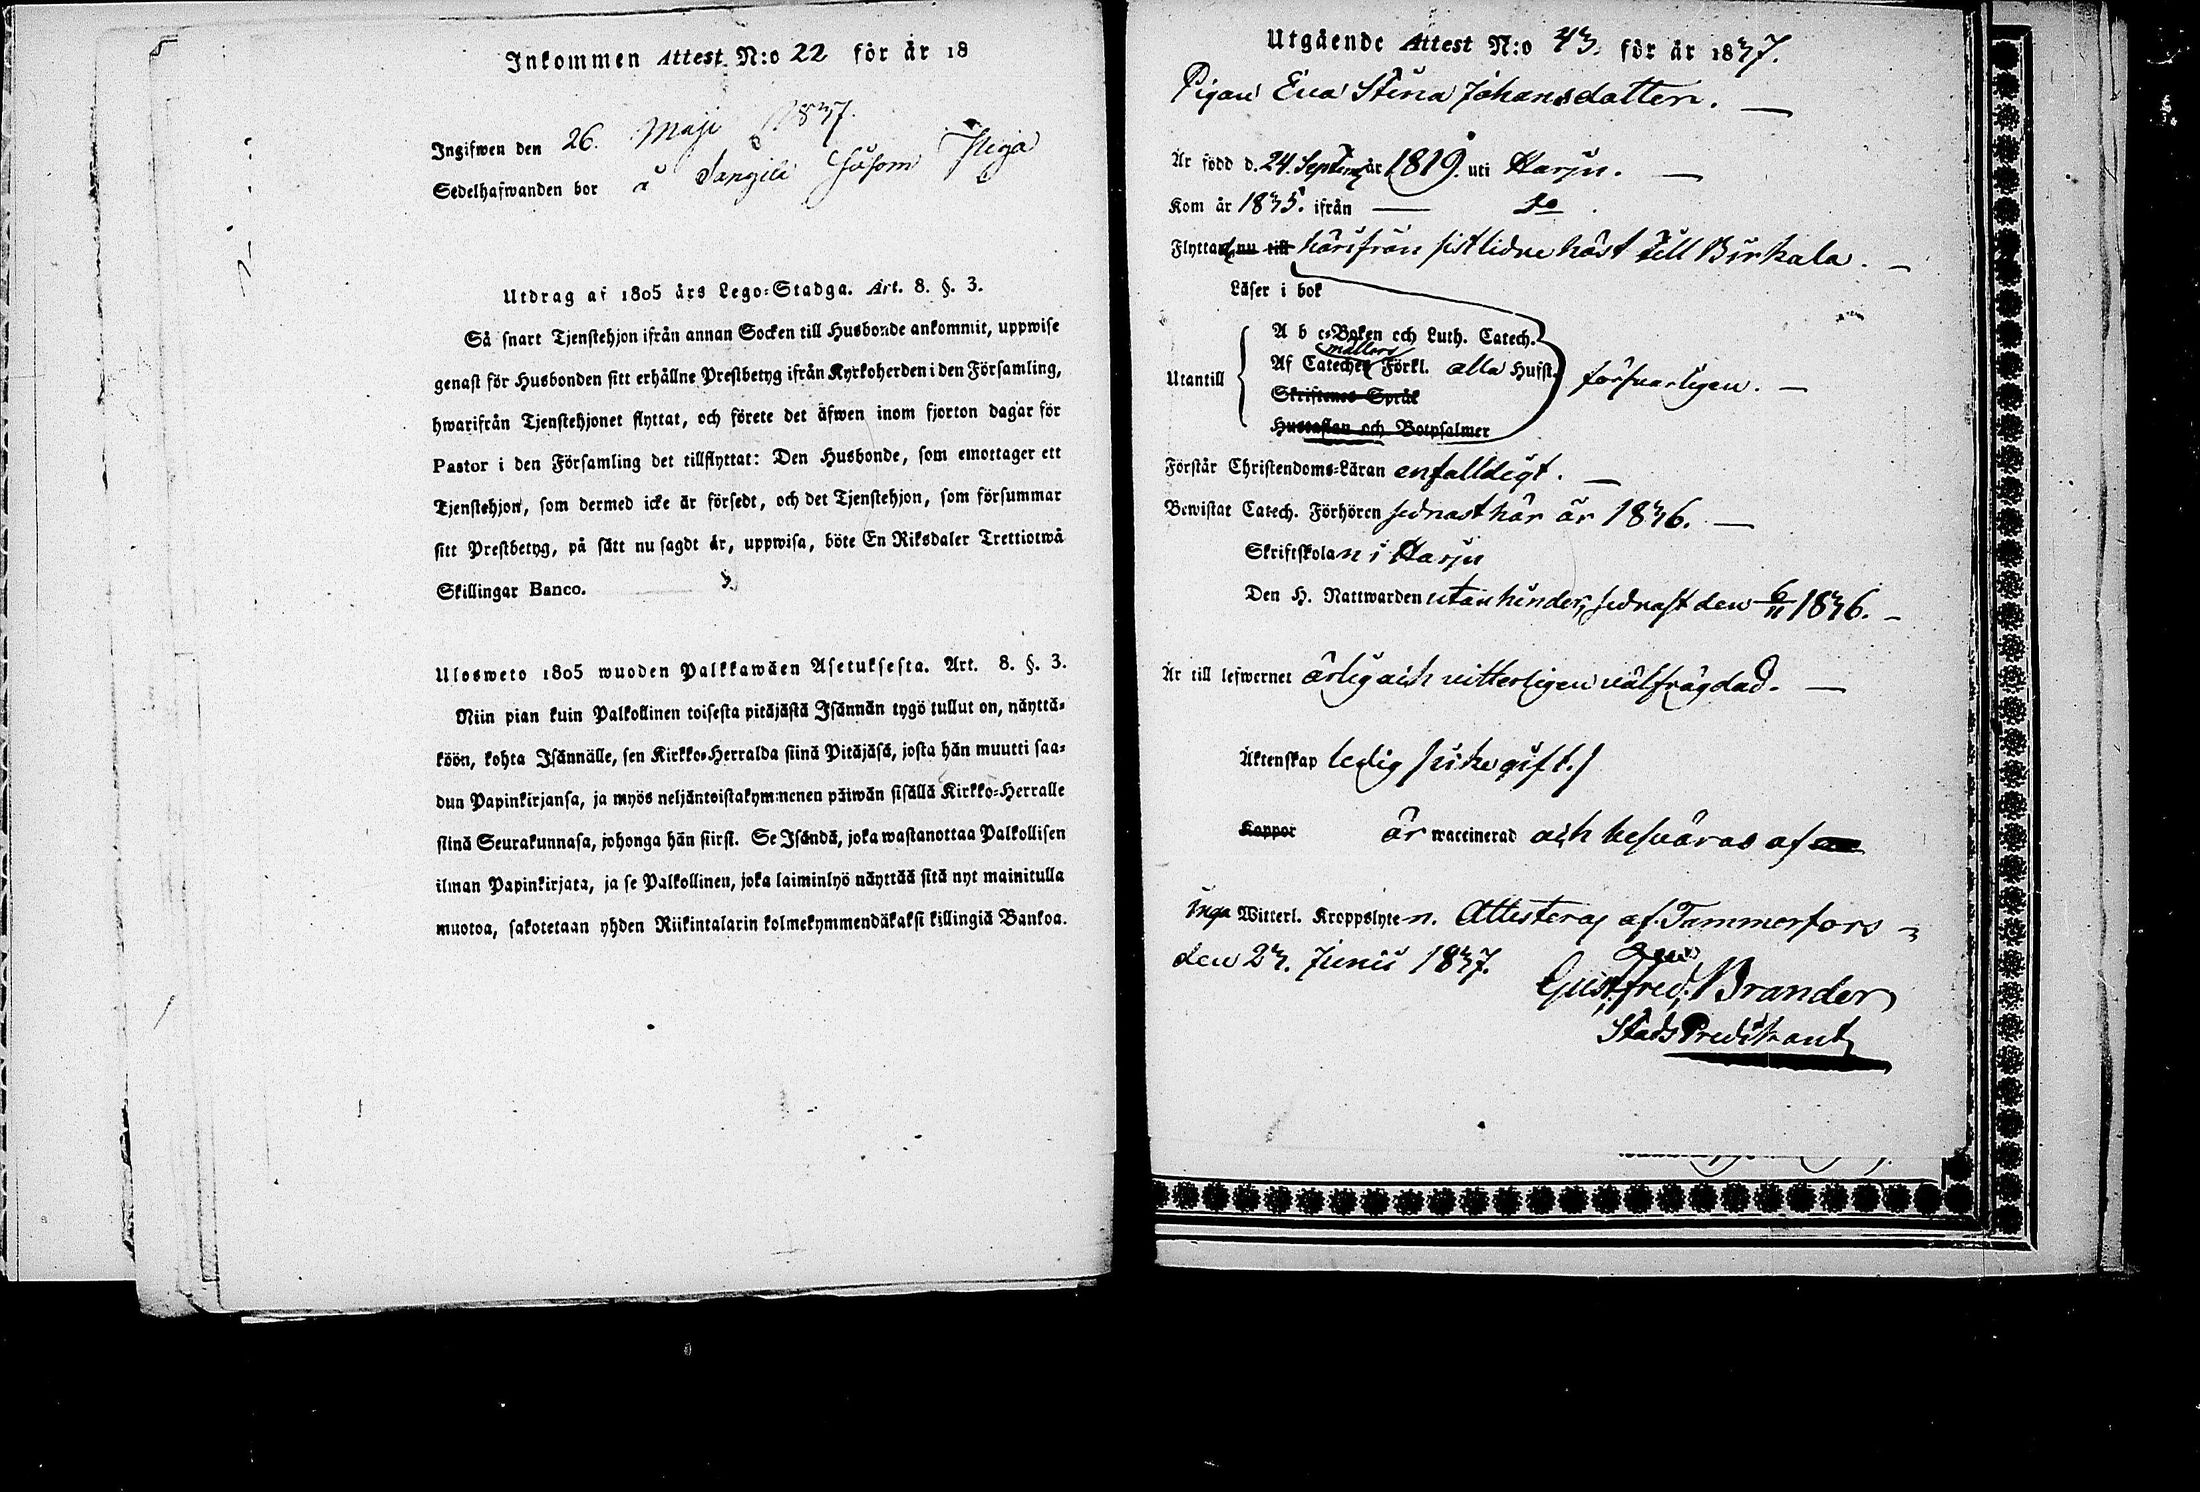 Inkommen Attest N:o 22 för år 18
Ingifwen den 26. Maji 1837.
Sedelhafwanden bor å Sangila såsom Piga
Utdrag af 1805 års Lego-Stadga. Art. 8. §. 3.
Så snart Tjenstehjon ifrån annan Socken till Husbonde ankommit, uppwise
genast för Husbonden sitt erhållne Prestbetyg ifrån Kyrkoherden i den Församling,
hwarifrån Tjenstehjonet flyttat, och förete det äfwen inom fjorton dagar för
Pastor i den Församling det tillflyttat: Den Husbonde, som emottager ett
Tjenstehjon, som dermed icke är försedt, och det Tjenstehjon, som försummar
sitt Prestbetyg, på sätt nu sagdt är, uppwisa, böte En Riksdaler Trettiotwå
Skillingar Banco.
Ulosweto 1805 wuoden Palkkawäen Asetuksesta. Art. 8. §. 3.
Niin pian kuin Palkollinen toisesta pitäjästä Isännän tygö tullut on, näyttä-
köön, kohta Isännälle, sen Kirkko-Herralda siinä Pitäjäsä, josta hän muutti saa-
dun Papinkirjansa, ja myös neljäntoistakymmenen päiwän sisällä Kirkko-Herralle
siinä Seurakunnasa, johonga hän siirsi. Se Isändä, joka wastanottaa Palkollisen
ilman Papinkirjata, ja se Palkollinen, joka laiminlyö näyttää sitä nyt mainitulla
muotoa, sakotetaan yhden Riikintalarin kolmekymmendäkaksi killingiä Bankoa.
Utgående Attest N:o 43. för år 1837.
Pigan Eva Stina Johansdotter.
Är född d. 24. Septem år 1819. uti Harju.
Kom år 1835. ifrån — do.
Flyttat nu till härifrån sistlidne höst till Birkala.
Läser i bok
A b c-Boken och Luth. Catech.
möllers
Utantill Af Cateches Förkl. alla Hufst. försvarligen.
Skriftenes Språk
Hustaflan och Botpsalmer
Förstår Christendoms-Läran enfalldigt.
Bewistat Catech. Förhören sednast här år 1836.
Skriftskolan i Harju
Den H. Nattwarden utan hinder, sednast den 6/11 1836.
Är till lefwernet ärlig och vitterligen välfrägdad.
Äktenskap ledig (icke gift.)
Koppor är waccinerad och besväras af
inga Witterl. Kroppslyten. Attesteras af Tammerfors
den 23. Junii 1837.
Gust. Fred. Brander
Stads Predikant